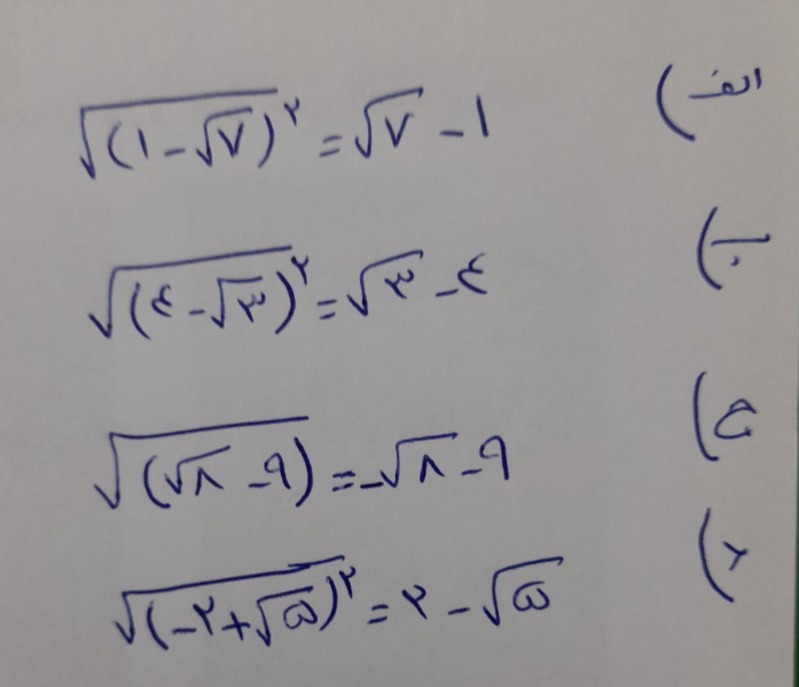 الف) √(۱-√۷)^۲ = √۷ - ۱
ب) √(٤-√۳)^۲ = √۳ - ٤
ج) √(√۸ - ۹) = -√۸ - ۹
د) √(-۲+√۵)^۲ = ۲ - √۵